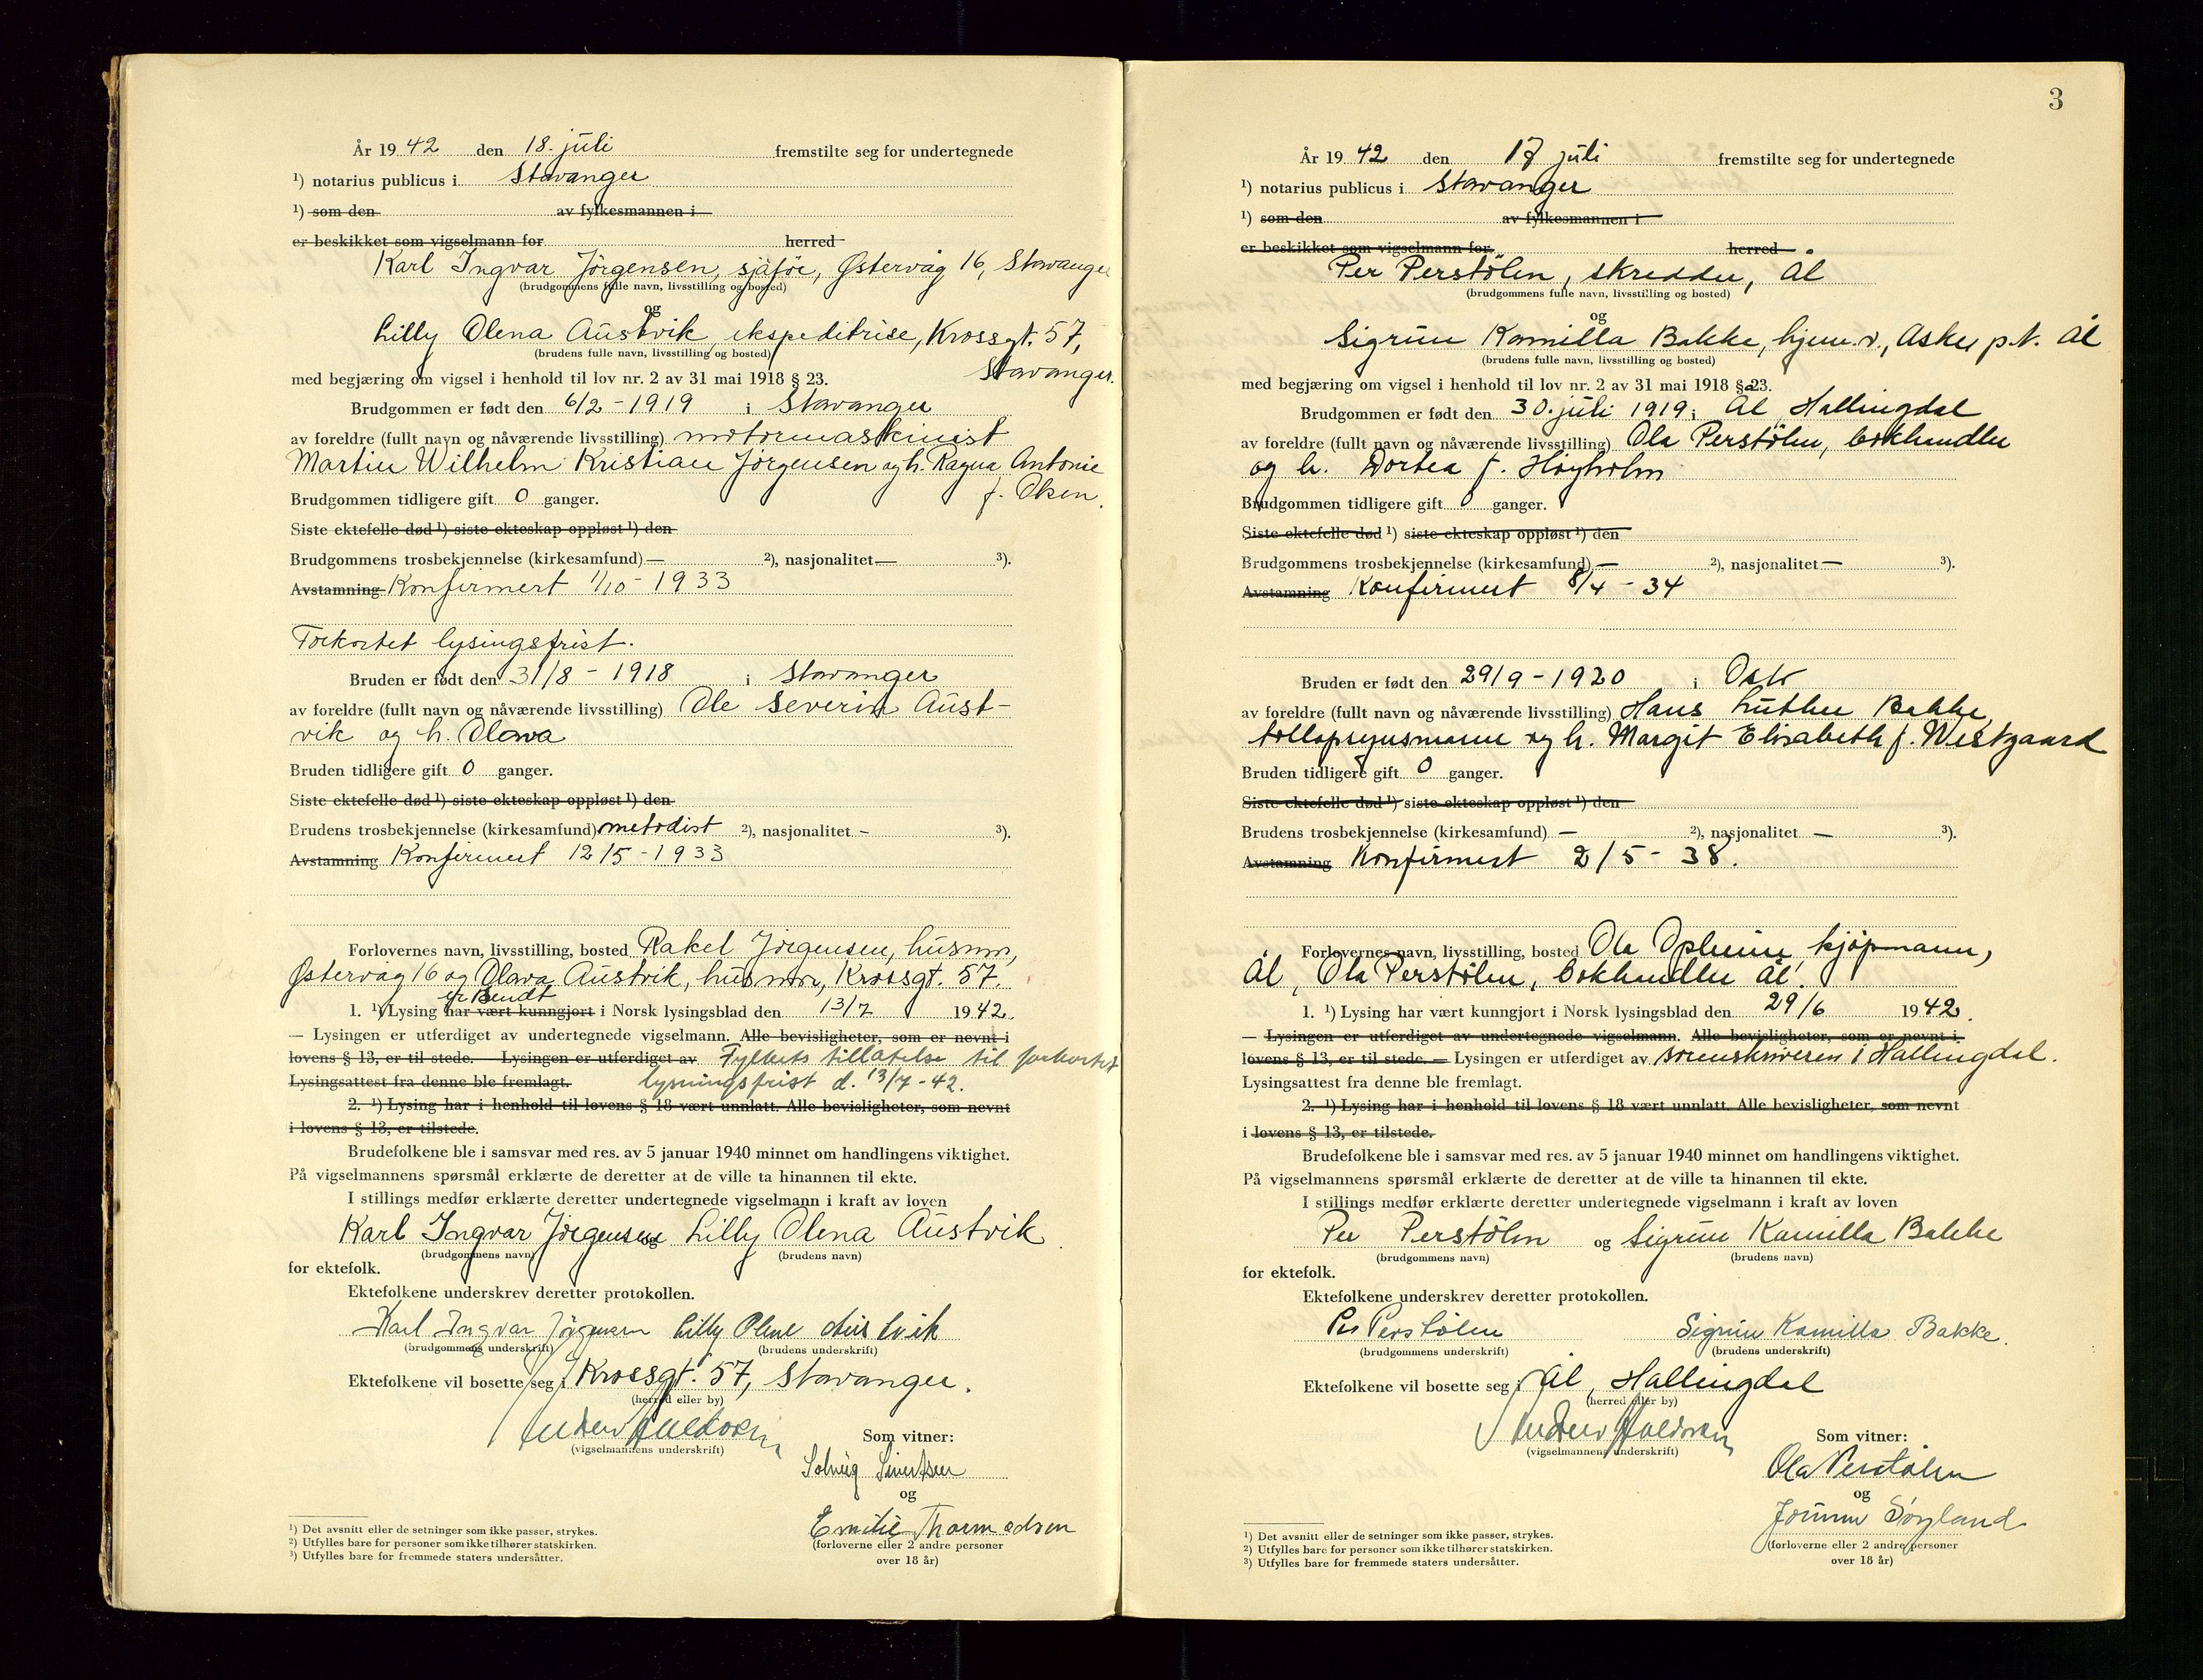 År 19 42 den 18. juli fremstilte seg for undertegnede
¹) notarius publicus i Stavanger
¹) som den av fylkesmannen i
er beskikket som vigselmann for herred
Karl Ingvar Jörgensen, sjåför, Østervåg 16, Stavanger
(brudgommens fulle navn, livsstilling og bosted)
og
Lilly Olena Austvik, ekspeditrise, Krossgt. 57,
(brudens fulle navn, livsstilling og bosted)
Stavanger.
med begjæring om vigsel i henhold til lov nr. 2 av 31 mai 1918 § 23.
Brudgommen er født den 6/2 - 1919 i Stavanger
av foreldre (fullt navn og nåværende livsstilling) motormaskinist
Martin Wilhelm Kristian Jörgensen og h. Ragna Antonie
f. Olsen.
Brudgommen tidligere gift 0 ganger.
Siste ektefelle død ¹) siste ekteskap oppløst ¹) den
Brudgommens trosbekjennelse (kirkesamfund) — ²), nasjonalitet — ³).
Avstamning Konfirmert 1/10 - 1933
Forkortet lysingsfrist.
Bruden er født den 31/8 - 1918 i Stavanger
av foreldre (fullt navn og nåværende livsstilling) Ole Severin Aust-
vik og h. Olava
Bruden tidligere gift 0 ganger.
Siste ektefelle død ¹) siste ekteskap oppløst ¹) den
Brudens trosbekjennelse (kirkesamfund) metodist ²), nasjonalitet - ³).
Avstamning Konfirmert 12/5 - 1933
Forlovernes navn, livsstilling, bosted Rakel Jörgensen, husmor,
Østervåg 16 og Olava Austvik, husmor, Krossgt. 57.
er sendt
1. ¹) Lysing har vært kunngjort i Norsk lysingsblad den 13/7 1942.
— Lysingen er utferdiget av undertegnede vigselmann. Alle bevisligheter, som er nevnt i
lovens § 13, er til stede. — Lysingen er utferdiget av Fylkets tillatelse til forkortet
Lysingsattest fra denne ble fremlagt. lysningsfrist d. 13/7-42.
2. ¹) Lysing har i henhold til lovens § 18 vært unnlatt. Alle bevisligheter, som nevnt
i lovens § 13, er tilstede.
Brudefolkene ble i samsvar med res. av 5 januar 1940 minnet om handlingens viktighet.
På vigselmannens spørsmål erklærte de deretter at de ville ta hinannen til ekte.
I stillings medfør erklærte deretter undertegnede vigselmann i kraft av loven
Karl Ingvar Jörgensen og Lilly Olena Austvik
(brudgommens navn) (brudens navn)
for ektefolk.
Ektefolkene underskrev deretter protokollen.
Karl Ingvar Jörgensen Lilly Olene Austvik
(brudgommens underskrift) (brudens underskrift)
Ektefolkene vil bosette seg i Krossgt. 57, Stavanger.
(herred eller by)
(vigselmannens underskrift)
Som vitner:
Solveig Sivertsen
og
Emilie Thormodsen
(forloverne eller 2 andre personer
over 18 år)
¹) Det avsnitt eller de setninger som ikke passer, strykes.
²) Utfylles bare for personer som ikke tilhører statskirken.
³) Utfylles bare for fremmede staters undersåtter.
3
År 19 42 den 18 juli fremstilte seg for undertegnede
¹) notarius publicus i Stavanger
¹) som den av fylkesmannen i
er beskikket som vigselmann for herred
Per Perstölen, skredder, Ål
(brudgommens fulle navn, livsstilling og bosted)
og
Sigrun Kamilla Bakke, hjem.v., Asker p.t. Ål
(brudens fulle navn, livsstilling og bosted)
med begjæring om vigsel i henhold til lov nr. 2 av 31 mai 1918 § 23.
Brudgommen er født den 30. juli 1919 i Ål Hallingdal
av foreldre (fullt navn og nåværende livsstilling) Ola Perstölen, bokhandler
og h. Dortea f. Höyholm
Brudgommen tidligere gift 0 ganger.
Siste ektefelle død ¹) siste ekteskap oppløst ¹) den
Brudgommens trosbekjennelse (kirkesamfund) — ²), nasjonalitet — ³).
Avstamning Konfirmert 8/4 - 34
Bruden er født den 29/9 - 1920 i Oslo
av foreldre (fullt navn og nåværende livsstilling) Hans Luther Bakke
tolloppsynsmann og h. Margit Elisabeth f. Westgaard
Bruden tidligere gift 0 ganger.
Siste ektefelle død ¹) siste ekteskap oppløst ¹) den
Brudens trosbekjennelse (kirkesamfund) — ²), nasjonalitet — ³).
Avstamning Konfirmert 2/5 - 38.
Forlovernes navn, livsstilling, bosted Ola Opheim, kjöpmann,
Ål, Ola Perstölen, bokhandler Ål.
1. ¹) Lysing har vært kunngjort i Norsk lysingsblad den 29/6 1942.
— Lysingen er utferdiget av undertegnede vigselmann. Alle bevisligheter, som er nevnt i
lovens § 13, er til stede. — Lysingen er utferdiget av sorenskriveren i Hallingdal.
Lysingsattest fra denne ble fremlagt.
2. ¹) Lysing har i henhold til lovens § 18 vært unnlatt. Alle bevisligheter, som nevnt
i lovens § 13, er tilstede.
Brudefolkene ble i samsvar med res. av 5 januar 1940 minnet om handlingens viktighet.
På vigselmannens spørsmål erklærte de deretter at de ville ta hinannen til ekte.
I stillings medfør erklærte deretter undertegnede vigselmann i kraft av loven
Per Perstölen og Sigrun Kamilla Bakke
(brudgommens navn) (brudens navn)
for ektefolk.
Ektefolkene underskrev deretter protokollen.
Per Perstölen Sigrun Kamilla Bakke.
(brudgommens underskrift) (brudens underskrift)
Ektefolkene vil bosette seg i Ål, Hallingdal
(herred eller by)
(vigselmannens underskrift)
Som vitner:
Ola Perstölen
og
Jorunn Söyland
(forloverne eller 2 andre personer
over 18 år)
¹) Det avsnitt eller de setninger som ikke passer, strykes.
²) Utfylles bare for personer som ikke tilhører statskirken.
³) Utfylles bare for fremmede staters undersåtter.